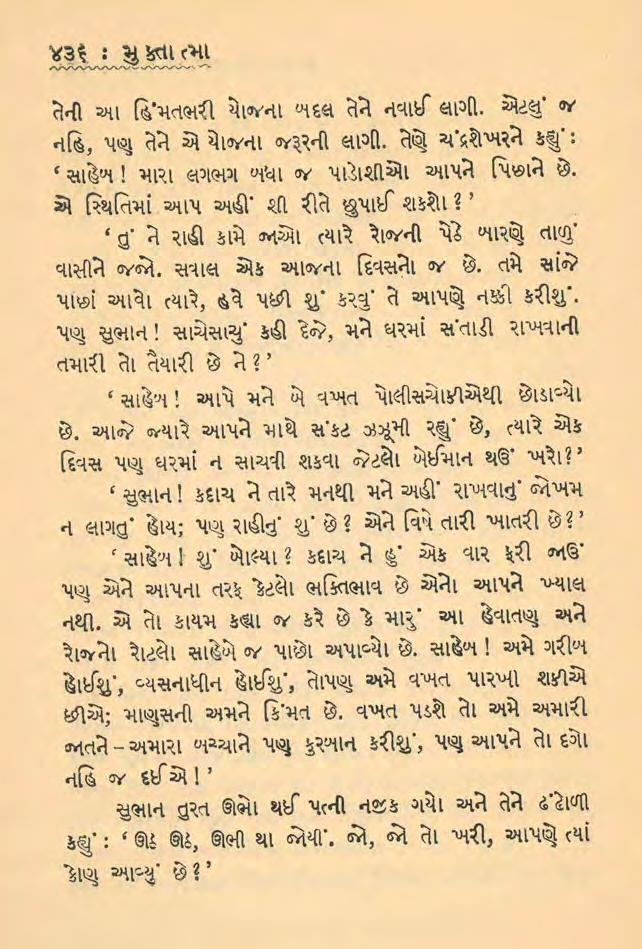 ૪૩૬ : મુક્તાત્મા
તેની આ હિંમતભરી યોજના બદલ તેને નવાઈ લાગી. એટલું જ
નહિ, પણ તેને એ યોજના જરૂરની લાગી. તેણે ચંદ્રશેખરને કહ્યું :
‘ સાહેબ ! મારા લગભગ બધા જ પાડોશીઓ આપને પિછાને છે.
એ સ્થિતિમાં આપ અહીં શી રીતે છુપાઈ શકશો ? ’
‘ તું ને રાહી કામે જાઓ ત્યારે રોજની પેઠે બારણે તાળું
વાસીને જજો. સવાલ એક આજના દિવસનો જ છે. તમે સાંજે
પાછાં આવો ત્યારે, હવે પછી શું કરવું તે આપણે નક્કી કરીશું.
પણ સુભાન ! સાચેસાચું કહી દેજે, મને ઘરમાં સંતાડી રાખવાની
તમારી તો તૈયારી છે ને ? ’
‘ સાહેબ ! આપે મને બે વખત પોલીસચોકીએથી છોડાવ્યો
છે. આજે જ્યારે આપને માથે સંકટ ઝઝૂમી રહ્યું છે, ત્યારે એક
દિવસ પણ ઘરમાં ન સાચવી શકવા જેટલો બેઈમાન થઉં ખરો ? ’
‘ સુભાન ! કદાચ ને તારે મનથી મને અહીં રાખવાનું જોખમ
ન લાગતું હોય; પણ રાહીનું શું છે ? એને વિષે તારી ખાતરી છે ? ’
‘ સાહેબ ! શું બોલ્યા ? કદાચ ને હું એક વાર ફરી જાઉં
પણ એને આપના તરફ કેટલો ભક્તિભાવ છે એનો આપને ખ્યાલ
નથી. એ તો કાયમ કહ્યા જ કરે છે કે મારું આ હેવાતણ અને
રોજનો રોટલો સાહેબે જ પાછો અપાવ્યો છે. સાહેબ ! અમે ગરીબ
હોઈશું, વ્યસનાધીન હોઈશું, તોપણ અમે વખત પારખી શકીએ
છીએ; માણસની અમને કિંમત છે. વખત પડશે તો અમે અમારી
જાતને – અમારા બચ્ચાને પણ કુરબાન કરીશું, પણ આપને તો દગો
નહિ જ દઈએ ! ’
સુભાન તુરત ઊભો થઈ પત્ની નજીક ગયો અને તેને ઢંઢોળી
કહ્યું : ‘ ઊઠ ઊઠ, ઊભી થા જોયીં. જો, જો તો ખરી, આપણે ત્યાં
કોણ આવ્યું છે ? ’